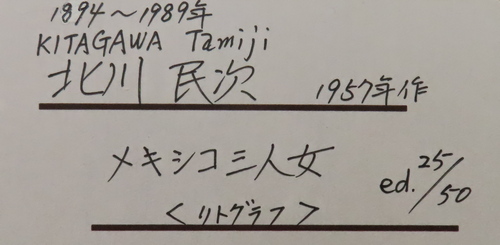 1894～1989年
KITAGAWA Tamiji
北川 民次 1957年作
メキシコ三人女 ed. 25/50
＜リトグラフ＞